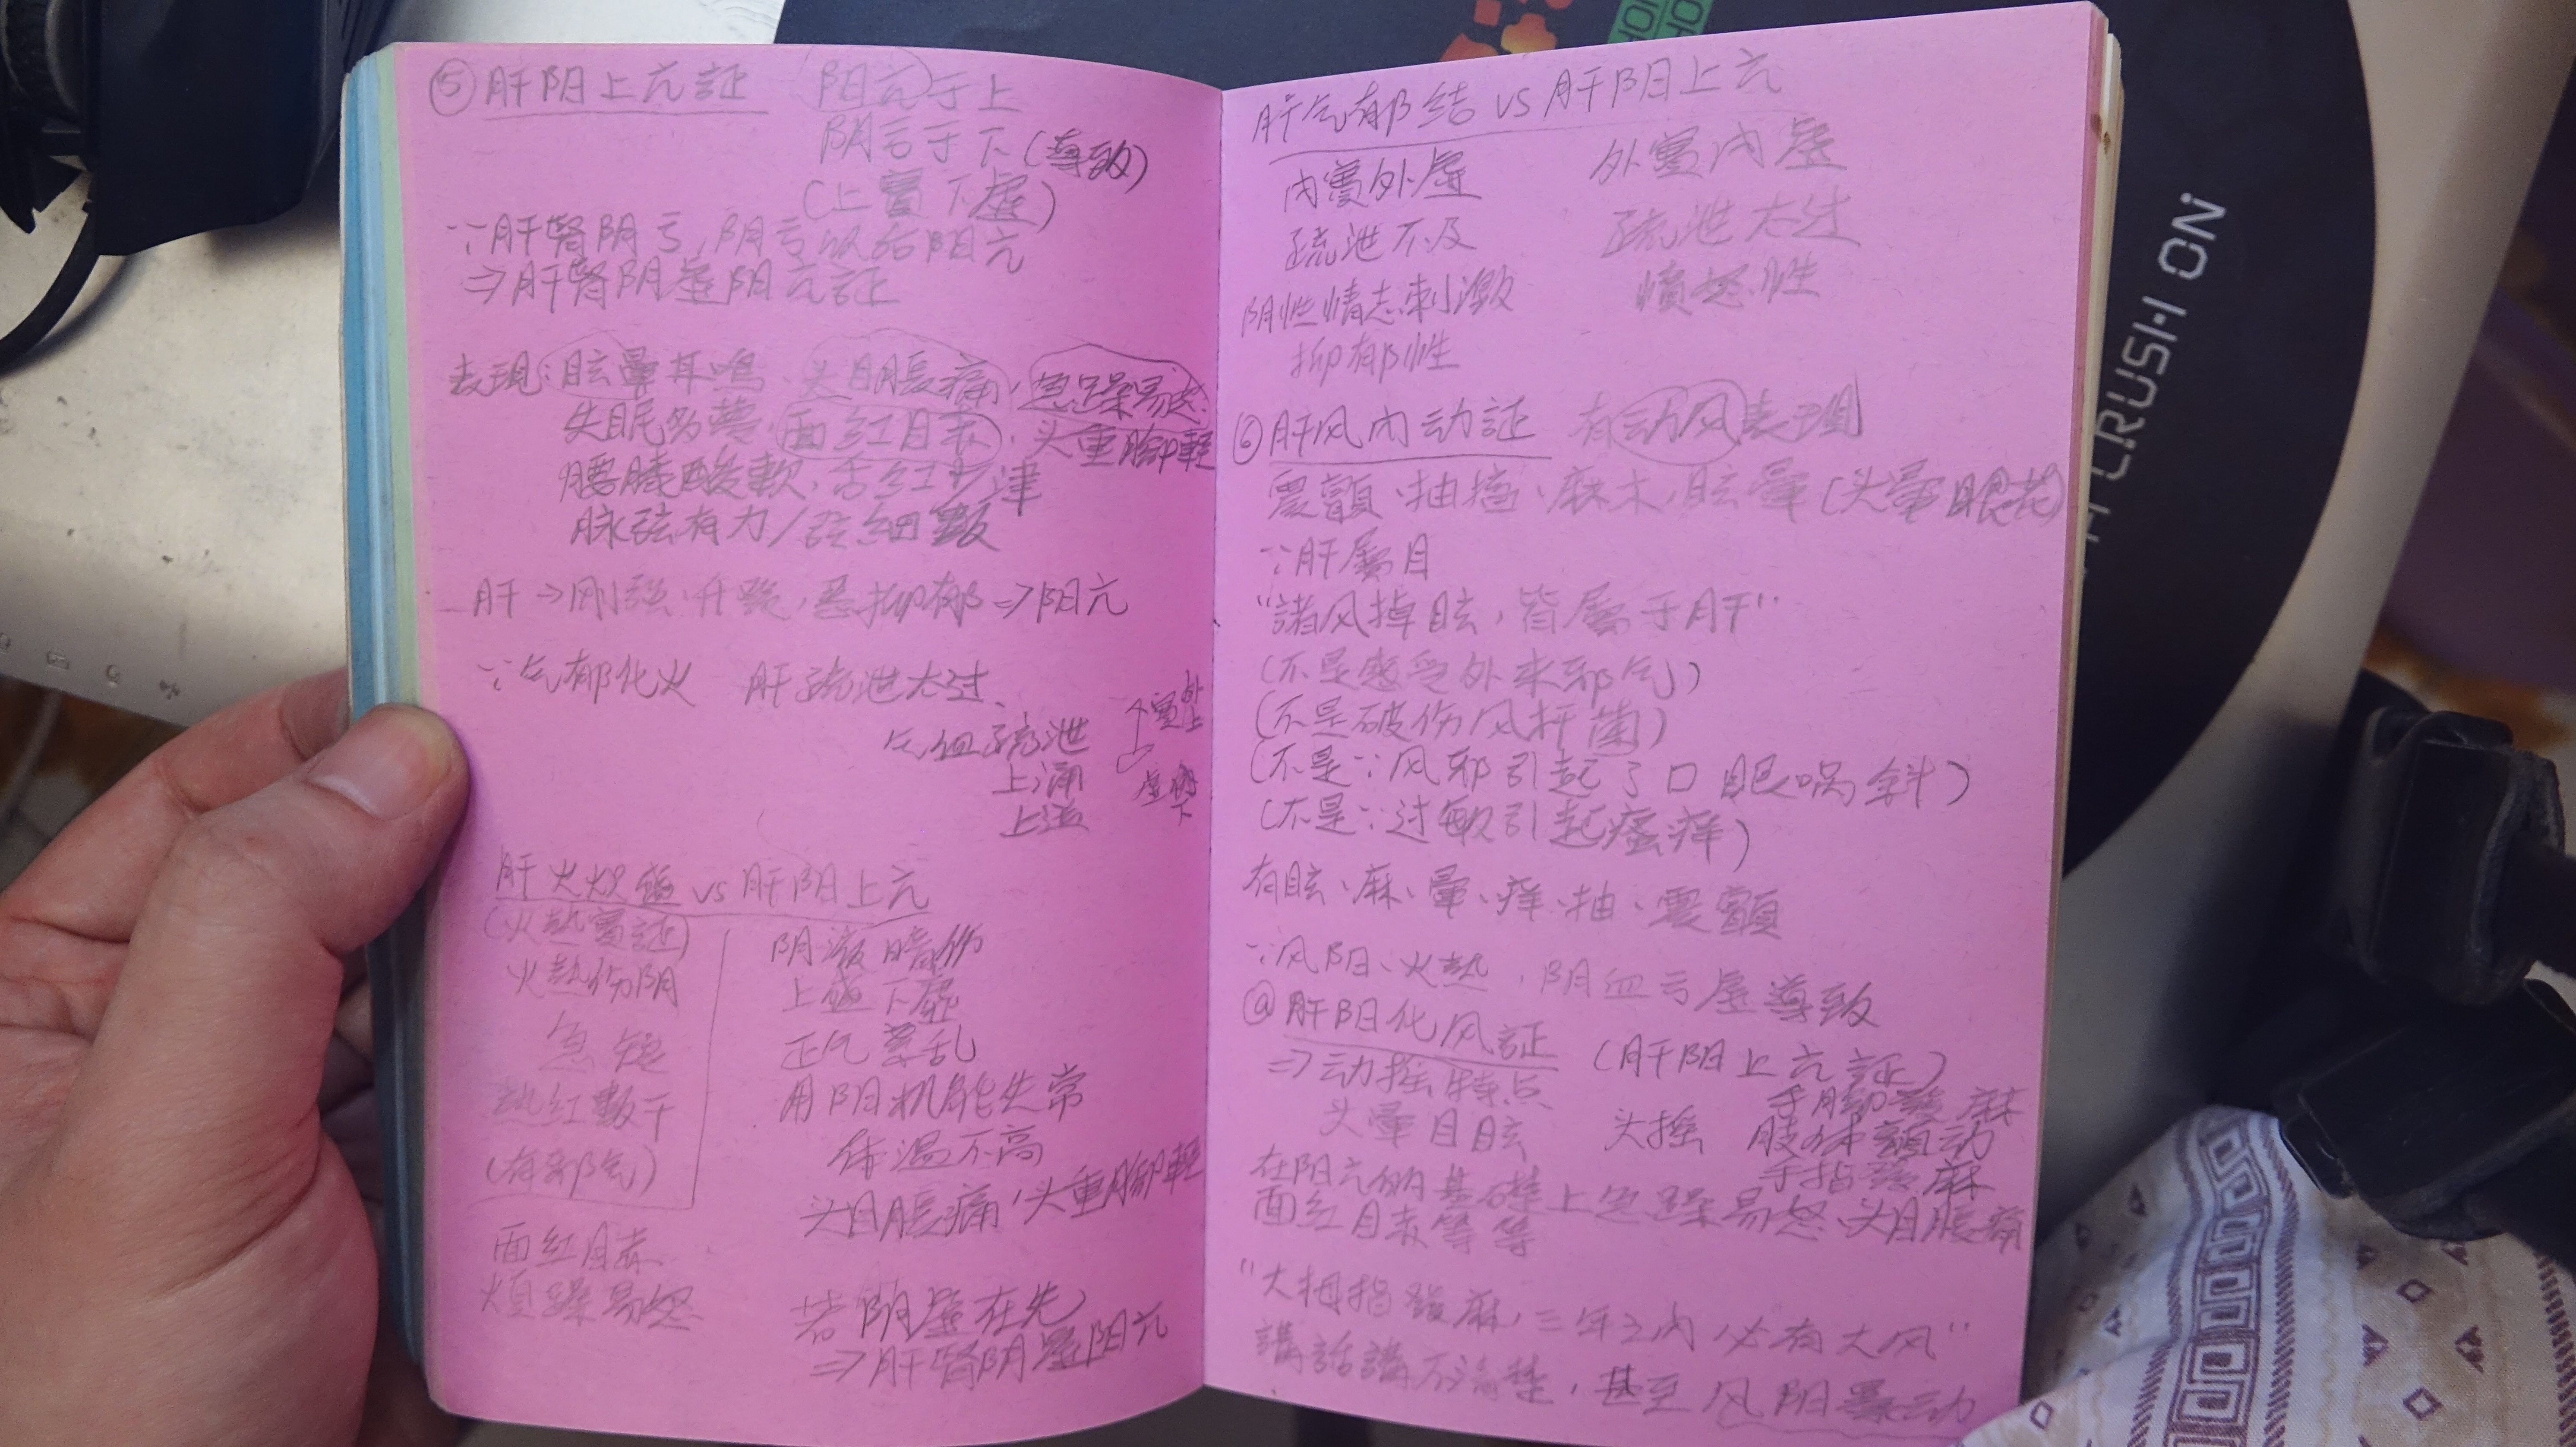 ⑤ 肝阳上亢証 阳亢于上
阴亏于下(導致)
(上實下虛)
∵肝腎阴亏,阴亏以后阳亢
⇒肝腎阴虛阳亢証
表現:眩暈耳鳴、头目脹痛、急躁易怒
失眠多夢、面紅目赤、头重腳輕
腰膝酸軟、舌紅少津
脉弦有力/弦細數
肝→刚強、升發,惡抑郁⇒阳亢
∵气郁化火 肝疏泄太过、
气血疏泄
上涌
上溢
實 外上
虛 下
肝火炽盛 vs 肝阳上亢
(火熱實証)
火熱伤阴
急 短
热紅數干
(有邪气)
面紅目赤
煩躁易怒
阴液暗伤
上盛下虛
正气紊乱
用阴机能失常
体温不高
头目脹痛,头重腳輕
若阴虛在先
⇒肝腎阴虛阳亢
肝气郁结 vs 肝阳上亢
内實外虛 外實内虛
疏泄不及 疏泄太过
阴性情志刺激 憤怒性
抑郁性
⑥ 肝风内动証 有动风表現
震顫、抽搐、麻木、眩暈(头暈眼花)
∵肝屬目
"諸风掉眩,皆屬于肝"
(不是感受外来邪气)
(不是破伤风杆菌)
(不是∵风邪引起了口眼喎斜)
(不是∵过敏引起瘙痒)
有眩、麻、暈、痒、抽、震顫
∵风阳、火熱,阴血亏虛導致
ⓐ 肝阳化风証 (肝阳上亢証)
⇒动摇特点 手脚發麻
头暈目眩 头摇 肢体顫动
手指發麻
在阳亢的基礎上急躁易怒、头目脹痛
面紅目赤等等
"大拇指發麻,三年之内必有大风"
講話講不清楚,甚至风阳暴动
CRUSH ON